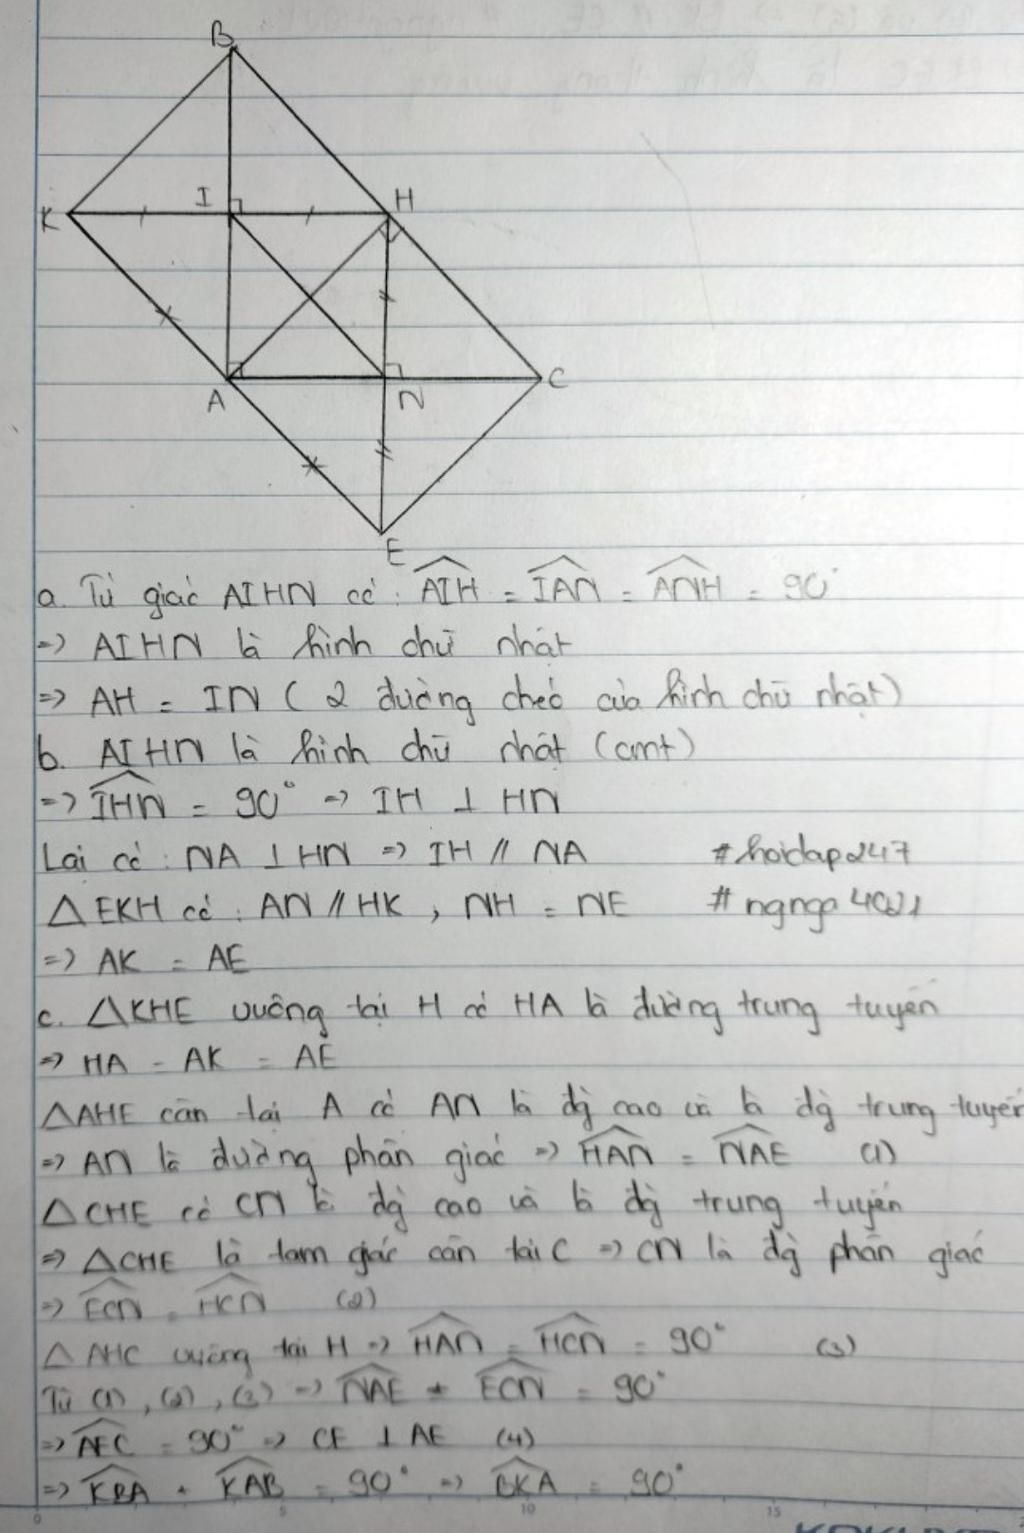 B
K
I
H
A
N
C
E
a. Tứ giác AIHN có: AIH = IAN = ANH = 90°
=> AIHN là hình chữ nhật
=> AH = IN ( 2 đường chéo của hình chữ nhật)
b. AIHN là hình chữ nhật (cmt)
=> IHN = 90° => IH ⊥ HN
Lại có: NA ⊥ HN => IH // NA #hoidap247
△EKH có: AN // HK, NH = NE
=> AK = AE
c. △KHE vuông tại H có HA là đường trung tuyến
=> HA = AK = AE
△AHE cân tại A có AN là đg cao và là đg trung tuyến
=> AN là đường phân giác => HAN = NAE (1)
△CHE có CN là đg cao và là đg trung tuyến
=> △CHE là tam giác cân tại C => CN là đg phân giác
=> ECN = HCN (2)
△AHC vuông tại H => HAN = HCN = 90° (3)
Từ (1), (2), (3) => NAE + ECN = 90°
=> AEC = 90° => CE ⊥ AE (4)
=> KBA + KAB = 90° => BKA = 90°
0 5 10 15